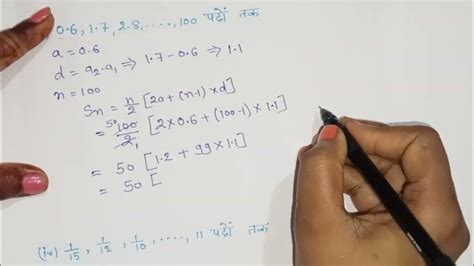 0.6, 1.7, 2.8, ....., 100 पदों तक
a = 0.6
d = a₂-a₁ ⇒ 1.7 - 0.6 ⇒ 1.1
n = 100
Sn = n/2 [2a + (n-1) × d]
= 50 100/2 1 [2 × 0.6 + (100-1) × 1.1]
= 50 [1.2 + 99 × 1.1]
= 50 [
(iv) 1/15, 1/12, 1/10, ....., 11 पदों तक